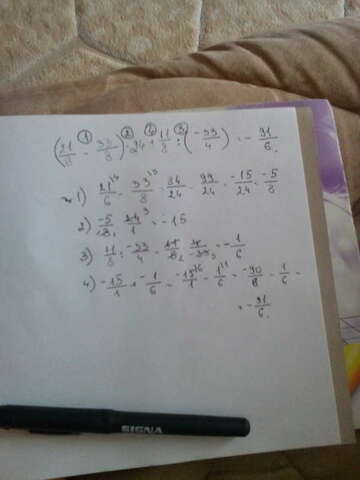 ① ② ④ ③
(21/8 - 33/8) · 24 + 11/8 : (-33/4) = -31/6.
1) 21/6 - 33/8 = 84/24 - 99/24 = -15/24 = -5/8
2) -5/8 · 24/1 = -15
3) 11/8 : -33/4 = -1/6
4) -15/1 + -1/6 = -15/1 - 1/6 = -90/6 - 1/6 =
= -31/6.
SIGNA